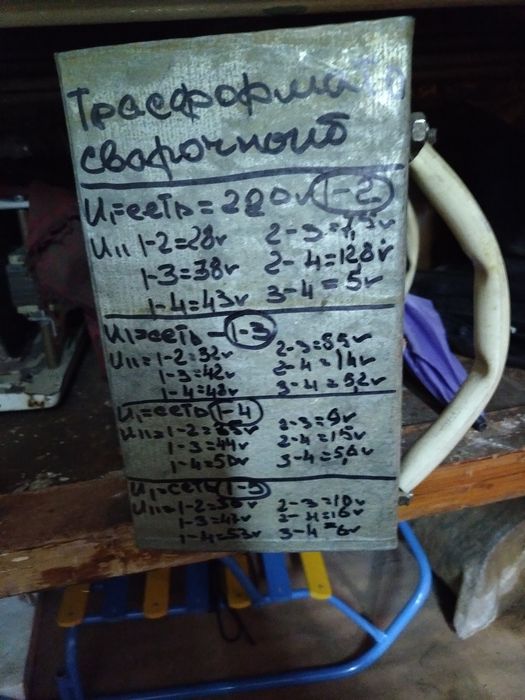 Трасформа
сварочный
U₁=сеть=220v 1-2
U₁₁ 1-2=28v 2-3=
1-3=38v 2-4=128v
1-4=43v 3-4=5v
U₁=сеть-1-3
U₁₁=1-2=32v 2-3=85v
1-3=42v 2-4=14v
1-4=48v 3-4=5,2v
U₁=сеть 1-4
U₁₁=1-2=35v 2-3=9v
1-3=44v 2-4=15v
1-4=50v 3-4=5,6v
U₁=сеть 1-5
U₁₁=1-2= 2-3=10v
1-3=47v 2-4=16v
1-4=53v 3-4=6v